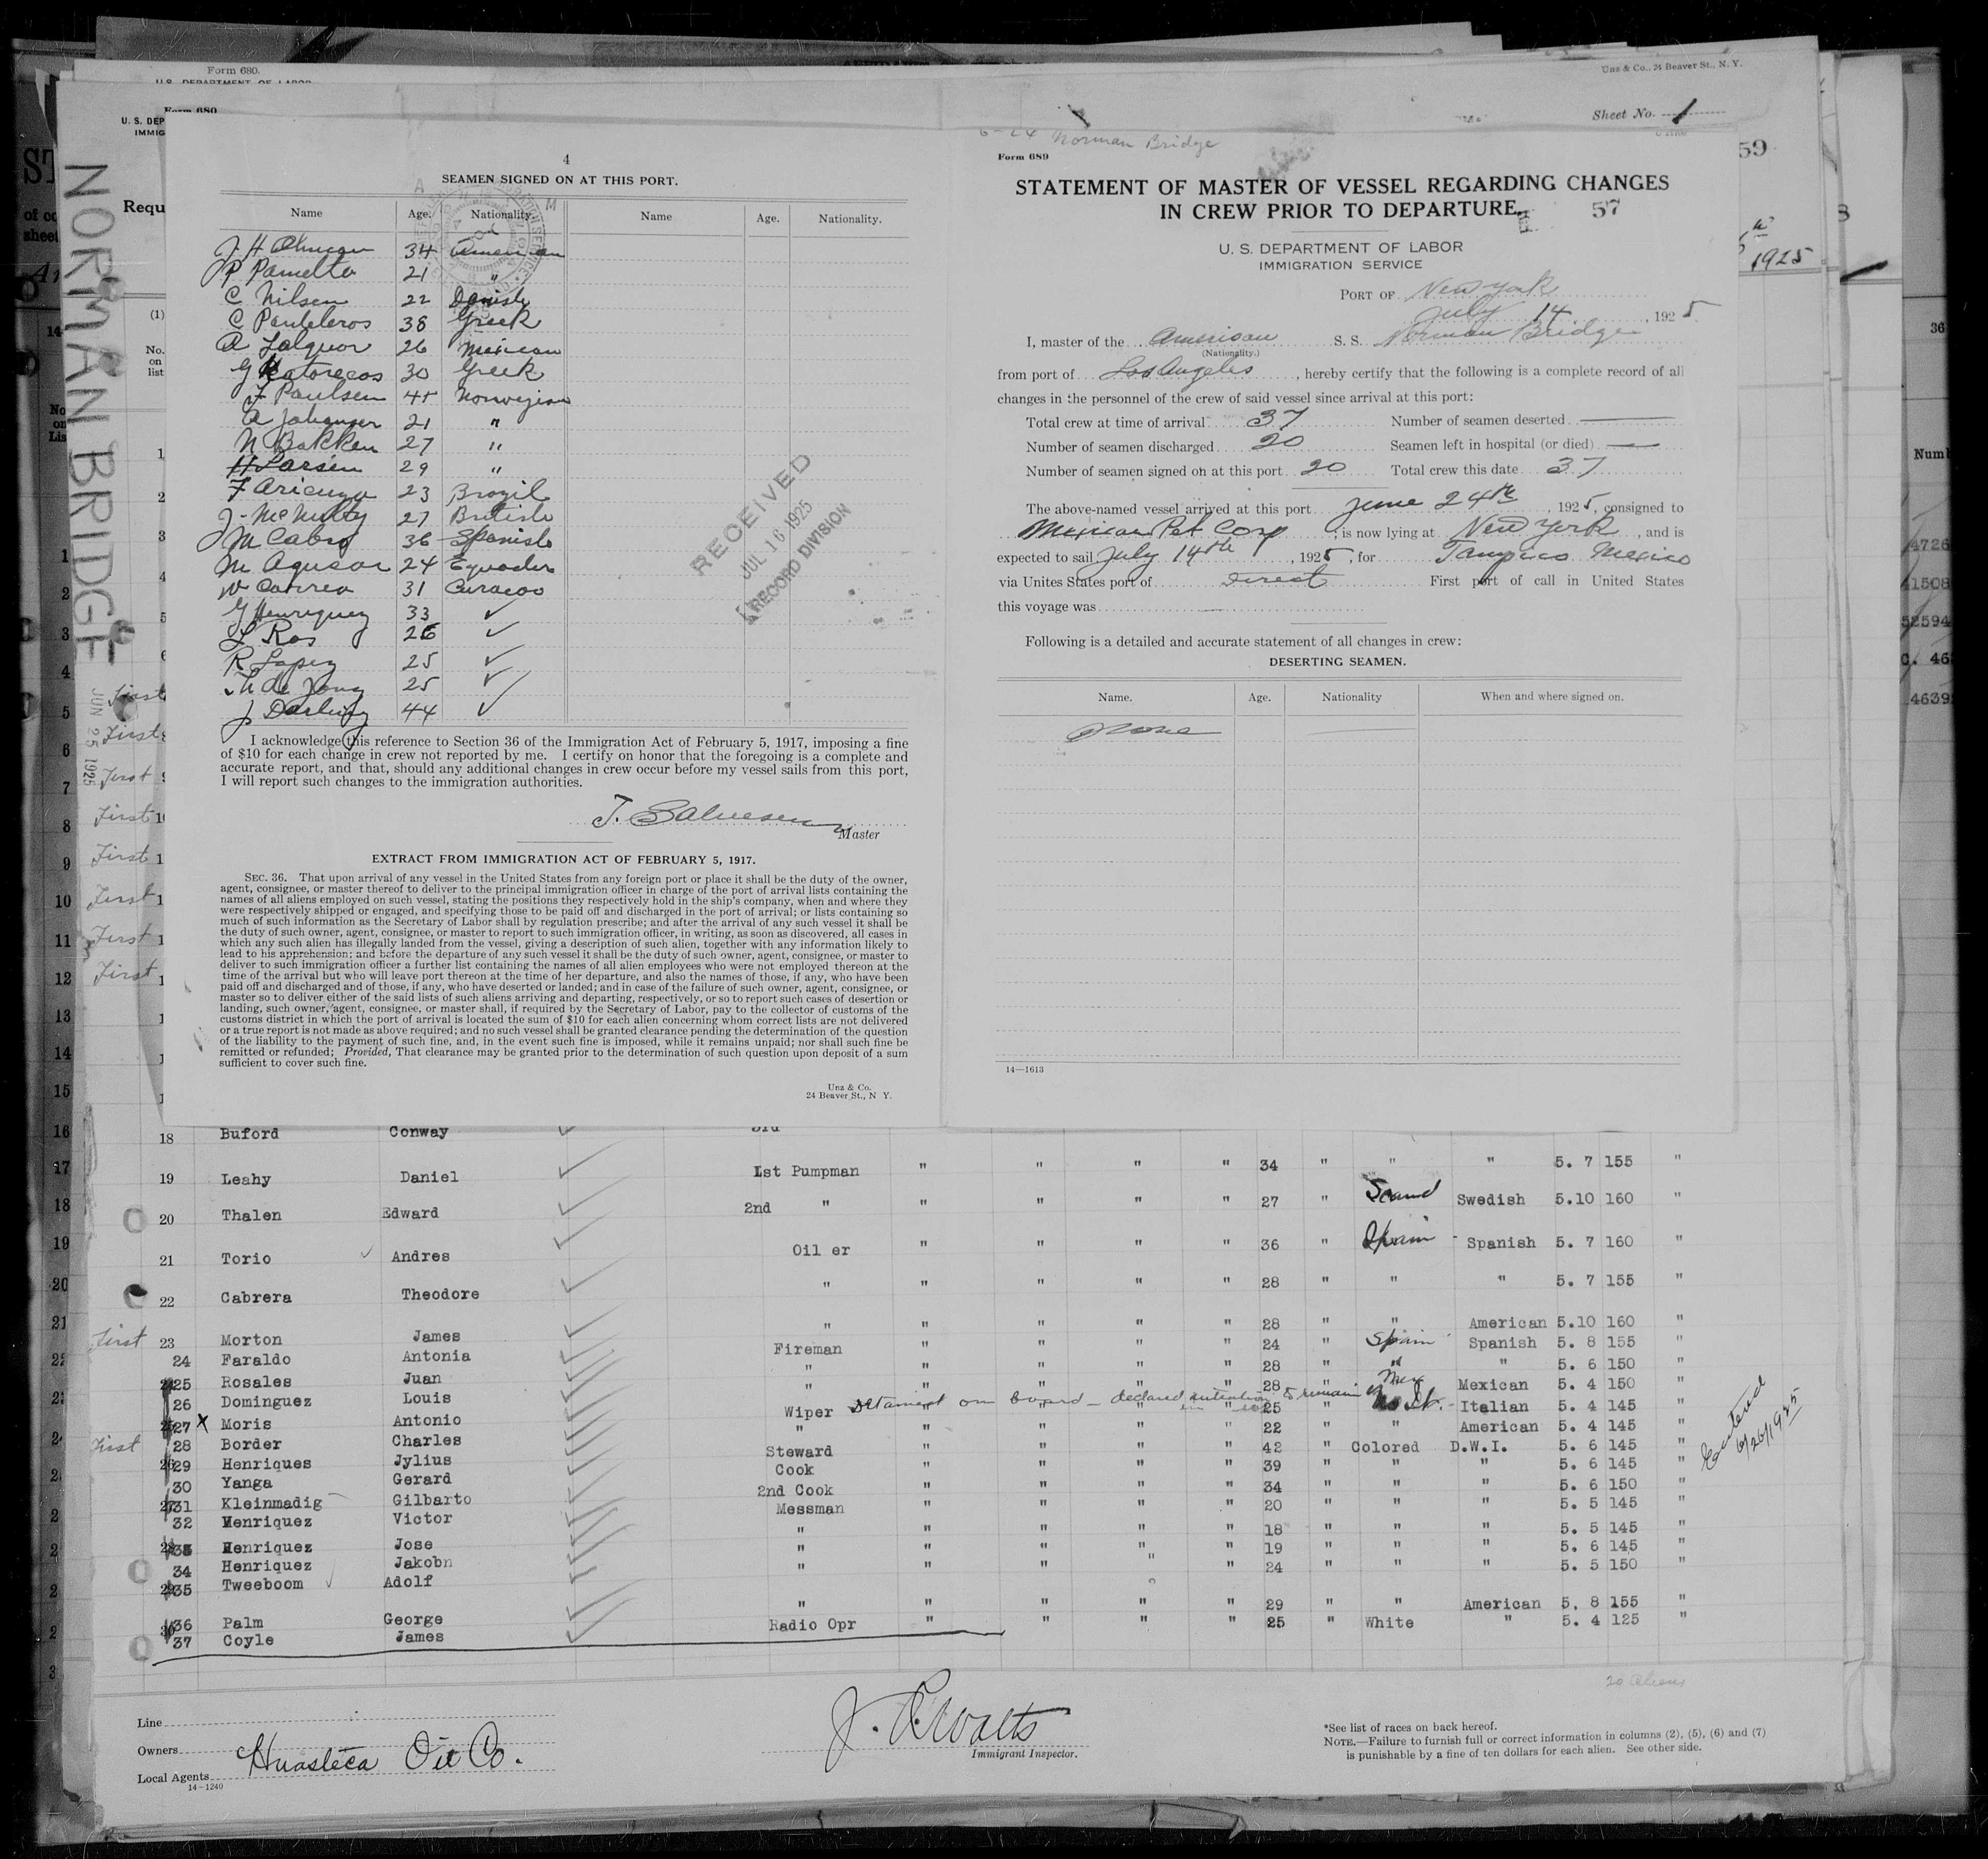 Form 680.
Unz & Co., 24 Beaver St., N. Y.
Form 680
U. S. DEP
IMMIG
Sheet No. 1
59
1925
Requ
NORMAN BRIDGE
JUN 25 1925
4
SEAMEN SIGNED ON AT THIS PORT.
Name Age. Nationality. Name Age. Nationality.
34 American
21 "
C Nilsen 22 Danish
38 Greek
26 Mexican
30 Greek
F Paulsen 41 Norwegian
21 "
N Bakken 27 "
H Larsen 29 "
23 Brazil
J. McNulty 27 British
M Cabro 36 Spanish
24 Equador
W Correa 31 Curacoo
G Henriquez 33 ✓
L Ros 26 ✓
R Lopez 25 ✓
25 ✓
J Darling 44 ✓
RECEIVED
JUL 16 1925
RECORD DIVISION
I acknowledge this reference to Section 36 of the Immigration Act of February 5, 1917, imposing a fine
of $10 for each change in crew not reported by me. I certify on honor that the foregoing is a complete and
accurate report, and that, should any additional changes in crew occur before my vessel sails from this port,
I will report such changes to the immigration authorities.
T. Salvesen
Master
EXTRACT FROM IMMIGRATION ACT OF FEBRUARY 5, 1917.
SEC. 36. That upon arrival of any vessel in the United States from any foreign port or place it shall be the duty of the owner,
agent, consignee, or master thereof to deliver to the principal immigration officer in charge of the port of arrival lists containing the
names of all aliens employed on such vessel, stating the positions they respectively hold in the ship's company, when and where they
were respectively shipped or engaged, and specifying those to be paid off and discharged in the port of arrival; or lists containing so
much of such information as the Secretary of Labor shall by regulation prescribe; and after the arrival of any such vessel it shall be
the duty of such owner, agent, consignee, or master to report to such immigration officer, in writing, as soon as discovered, all cases in
which any such alien has illegally landed from the vessel, giving a description of such alien, together with any information likely to
lead to his apprehension; and before the departure of any such vessel it shall be the duty of such owner, agent, consignee, or master to
deliver to such immigration officer a further list containing the names of all alien employees who were not employed thereon at the
time of the arrival but who will leave port thereon at the time of her departure, and also the names of those, if any, who have been
paid off and discharged and of those, if any, who have deserted or landed; and in case of the failure of such owner, agent, consignee, or
master so to deliver either of the said lists of such aliens arriving and departing, respectively, or so to report such cases of desertion or
landing, such owner, agent, consignee, or master shall, if required by the Secretary of Labor, pay to the collector of customs of the
customs district in which the port of arrival is located the sum of $10 for each alien concerning whom correct lists are not delivered
or a true report is not made as above required; and no such vessel shall be granted clearance pending the determination of the question
of the liability to the payment of such fine, and, in the event such fine is imposed, while it remains unpaid; nor shall such fine be
remitted or refunded; Provided, That clearance may be granted prior to the determination of such question upon deposit of a sum
sufficient to cover such fine.
Unz & Co.
24 Beaver St., N Y.
6-24 Norman Bridge
Form 689
STATEMENT OF MASTER OF VESSEL REGARDING CHANGES
IN CREW PRIOR TO DEPARTURE.
57
U. S. DEPARTMENT OF LABOR
IMMIGRATION SERVICE
PORT OF New York
July 14, 1925
I, master of the American S. S. Norman Bridge
(Nationality.)
from port of Los Angeles, hereby certify that the following is a complete record of all
changes in the personnel of the crew of said vessel since arrival at this port:
Total crew at time of arrival 37 Number of seamen deserted —
Number of seamen discharged 20 Seamen left in hospital (or died) —
Number of seamen signed on at this port 20 Total crew this date 37
The above-named vessel arrived at this port June 24th, 1925, consigned to
Mexican Pet Corp, is now lying at New York, and is
expected to sail July 14th, 1925, for Tampico Mexico
via Unites States port of Direct First port of call in United States
this voyage was
Following is a detailed and accurate statement of all changes in crew:
DESERTING SEAMEN.
Name. Age. Nationality When and where signed on.
None
14—1613
18 Buford Conway 3rd
19 Leahy Daniel 1st Pumpman " " " " 34 " " " 5. 7 155 "
20 Thalen Edward 2nd " " " " " 27 " Scand Swedish 5.10 160 "
21 Torio Andres Oil er " " " " 36 " Spain Spanish 5. 7 160 "
22 Cabrera Theodore " " " " " 28 " " " 5. 7 155 "
First 23 Morton James " " " " " 28 " " American 5.10 160 "
24 Faraldo Antonia Fireman " " " " 24 " Spain Spanish 5. 8 155 "
25 Rosales Juan " " " " " 28 " " " 5. 6 150 "
26 Dominguez Louis " " " " " 28 " Mex Mexican 5. 4 150 "
Detained on board - declared intention to remain in
27 X Moris Antonio Wiper " " 25 " Italian 5. 4 145 "
First 28 Border Charles " " " " " 22 " " American 5. 4 145 "
29 Henriques Jylius Steward " " " " 42 " Colored D.W.I. 5. 6 145 "
30 Yanga Gerard Cook " " " " 39 " " " 5. 6 145 "
31 Kleinmadig Gilbarto 2nd Cook " " " " 34 " " " 5. 6 150 "
32 Henriquez Victor Messman " " " " 20 " " " 5. 5 145 "
33 Henriquez Jose " " " " " 18 " " " 5. 5 145 "
34 Henriquez Jakobn " " " " " 19 " " " 5. 6 145 "
35 Tweeboom Adolf " " " " " 24 " " " 5. 5 150 "
36 Palm George " " " " " 29 " " American 5. 8 155 "
37 Coyle James Radio Opr " " " " 25 " White " 5. 4 125 "
Entered
6/26/1925
20 Aliens
Line
Owners
Huasteca Oil Co.
Local Agents
14-1240
Immigrant Inspector.
*See list of races on back hereof.
NOTE.—Failure to furnish full or correct information in columns (2), (5), (6) and (7)
is punishable by a fine of ten dollars for each alien. See other side.